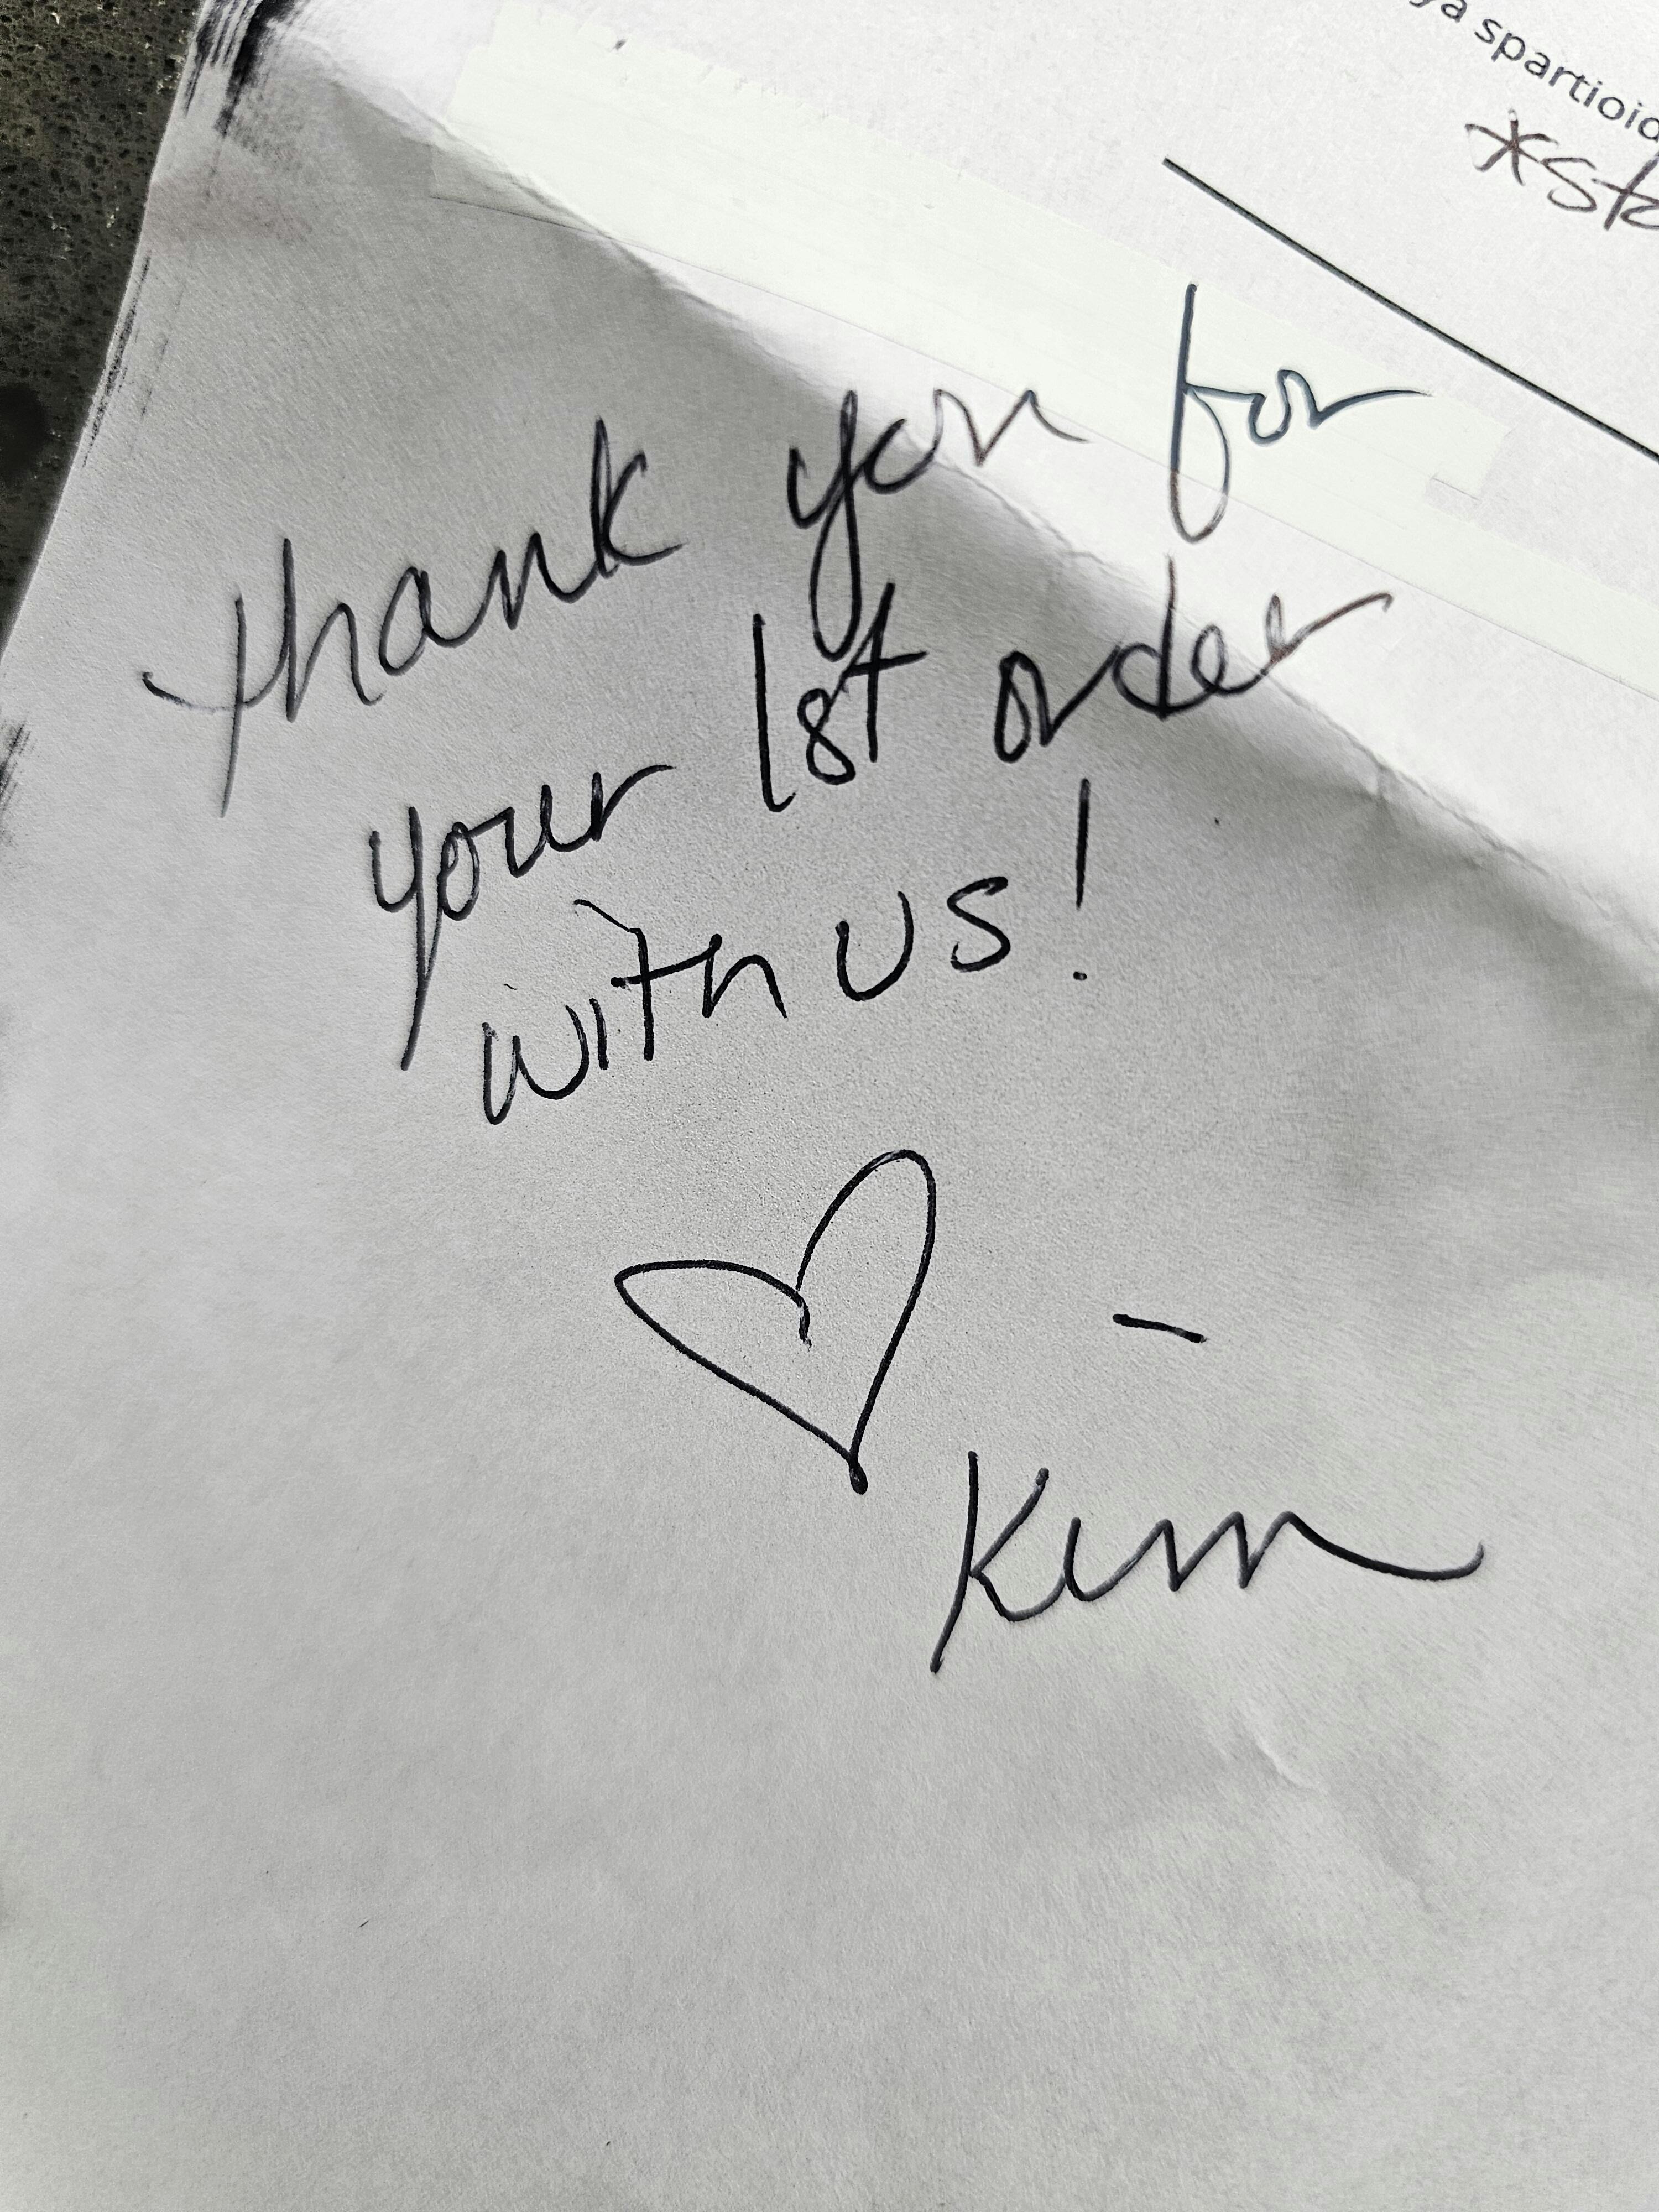 ya spartioid
*sta
thank you for
your 1st order
with us!
-
Kim